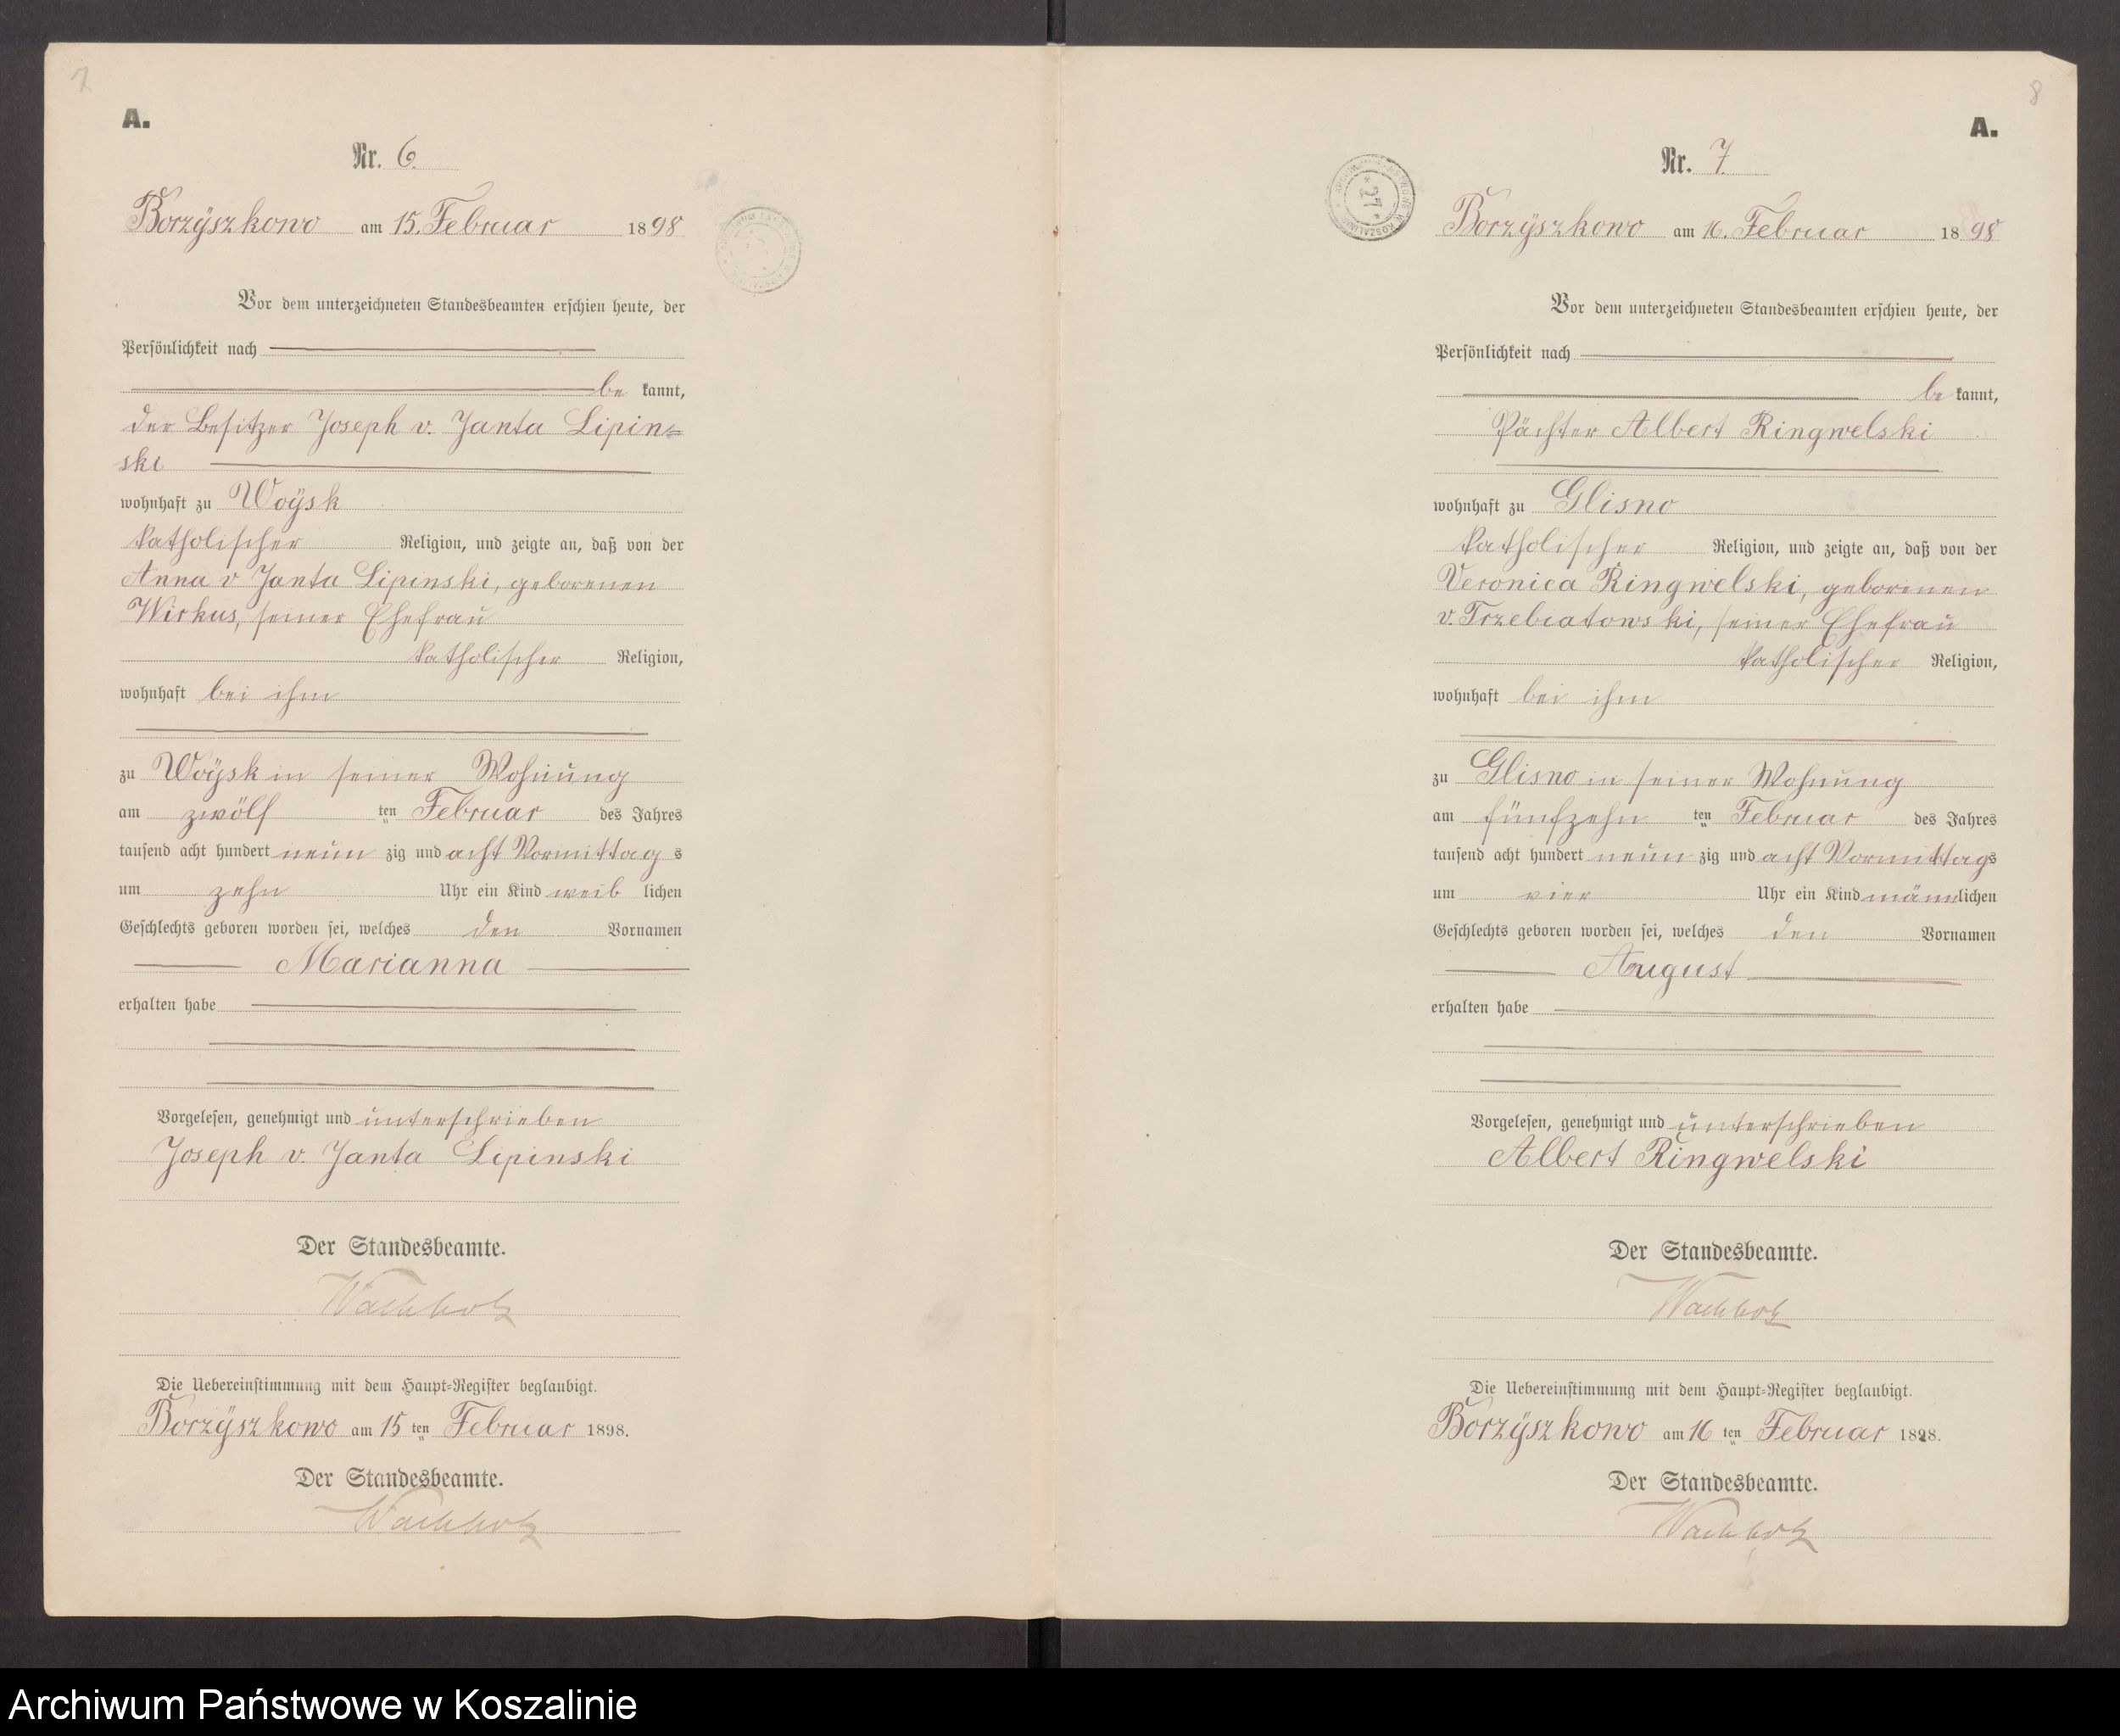 7
A.
Nr. 6.
Borzÿszkowo am 15. Februar 1898
Vor dem unterzeichneten Standesbeamten erschien heute, der
Persönlichkeit nach
be kannt,
der Besitzer Joseph v. Janta Lipin=
ski
wohnhaft zu Woÿsk
katholischer Religion, und zeigte an, daß von der
Anna v Janta Lipinski, geborenen
Wirkus, seiner Ehefrau
katholischer Religion,
wohnhaft bei ihm
zu Woÿsk in seiner Wohnung
am zwölf ten Februar des Jahres
tausend acht hundert neun zig und acht Vormittag s
um zehn Uhr ein Kind weib lichen
Geschlechts geboren worden sei, welches den Vornamen
Marianna
erhalten habe
Vorgelesen, genehmigt und unterschrieben
Joseph v. Janta Lipinski
Der Standesbeamte.
Wachholz
Die Uebereinstimmung mit dem Haupt=Register beglaubigt.
Borzÿszkowo am 15 ten Februar 1898.
Der Standesbeamte.
Wachholz
8
A.
Nr. 7.
27
Borzÿszkowo am 16. Februar 1898
Vor dem unterzeichneten Standesbeamten erschien heute, der
Persönlichkeit nach
be kannt,
Pächter Albert Ringwelski
wohnhaft zu Glisno
katholischer Religion, und zeigte an, daß von der
Veronica Ringwelski, geborenen
v. Trzebiatowski, seiner Ehefrau
katholischer Religion,
wohnhaft bei ihm
zu Glisno in seiner Wohnung
am fünfzehn ten Februar des Jahres
tausend acht hundert neun zig und acht Vormittags
um vier Uhr ein Kind männlichen
Geschlechts geboren worden sei, welches den Vornamen
August
erhalten habe
Vorgelesen, genehmigt und unterschrieben
Albert Ringwelski
Der Standesbeamte.
Wachholz
Die Uebereinstimmung mit dem Haupt=Register beglaubigt.
Borzÿszkowo am 16 ten Februar 1898.
Der Standesbeamte.
Wachholz
Archiwum Państwowe w Koszalinie